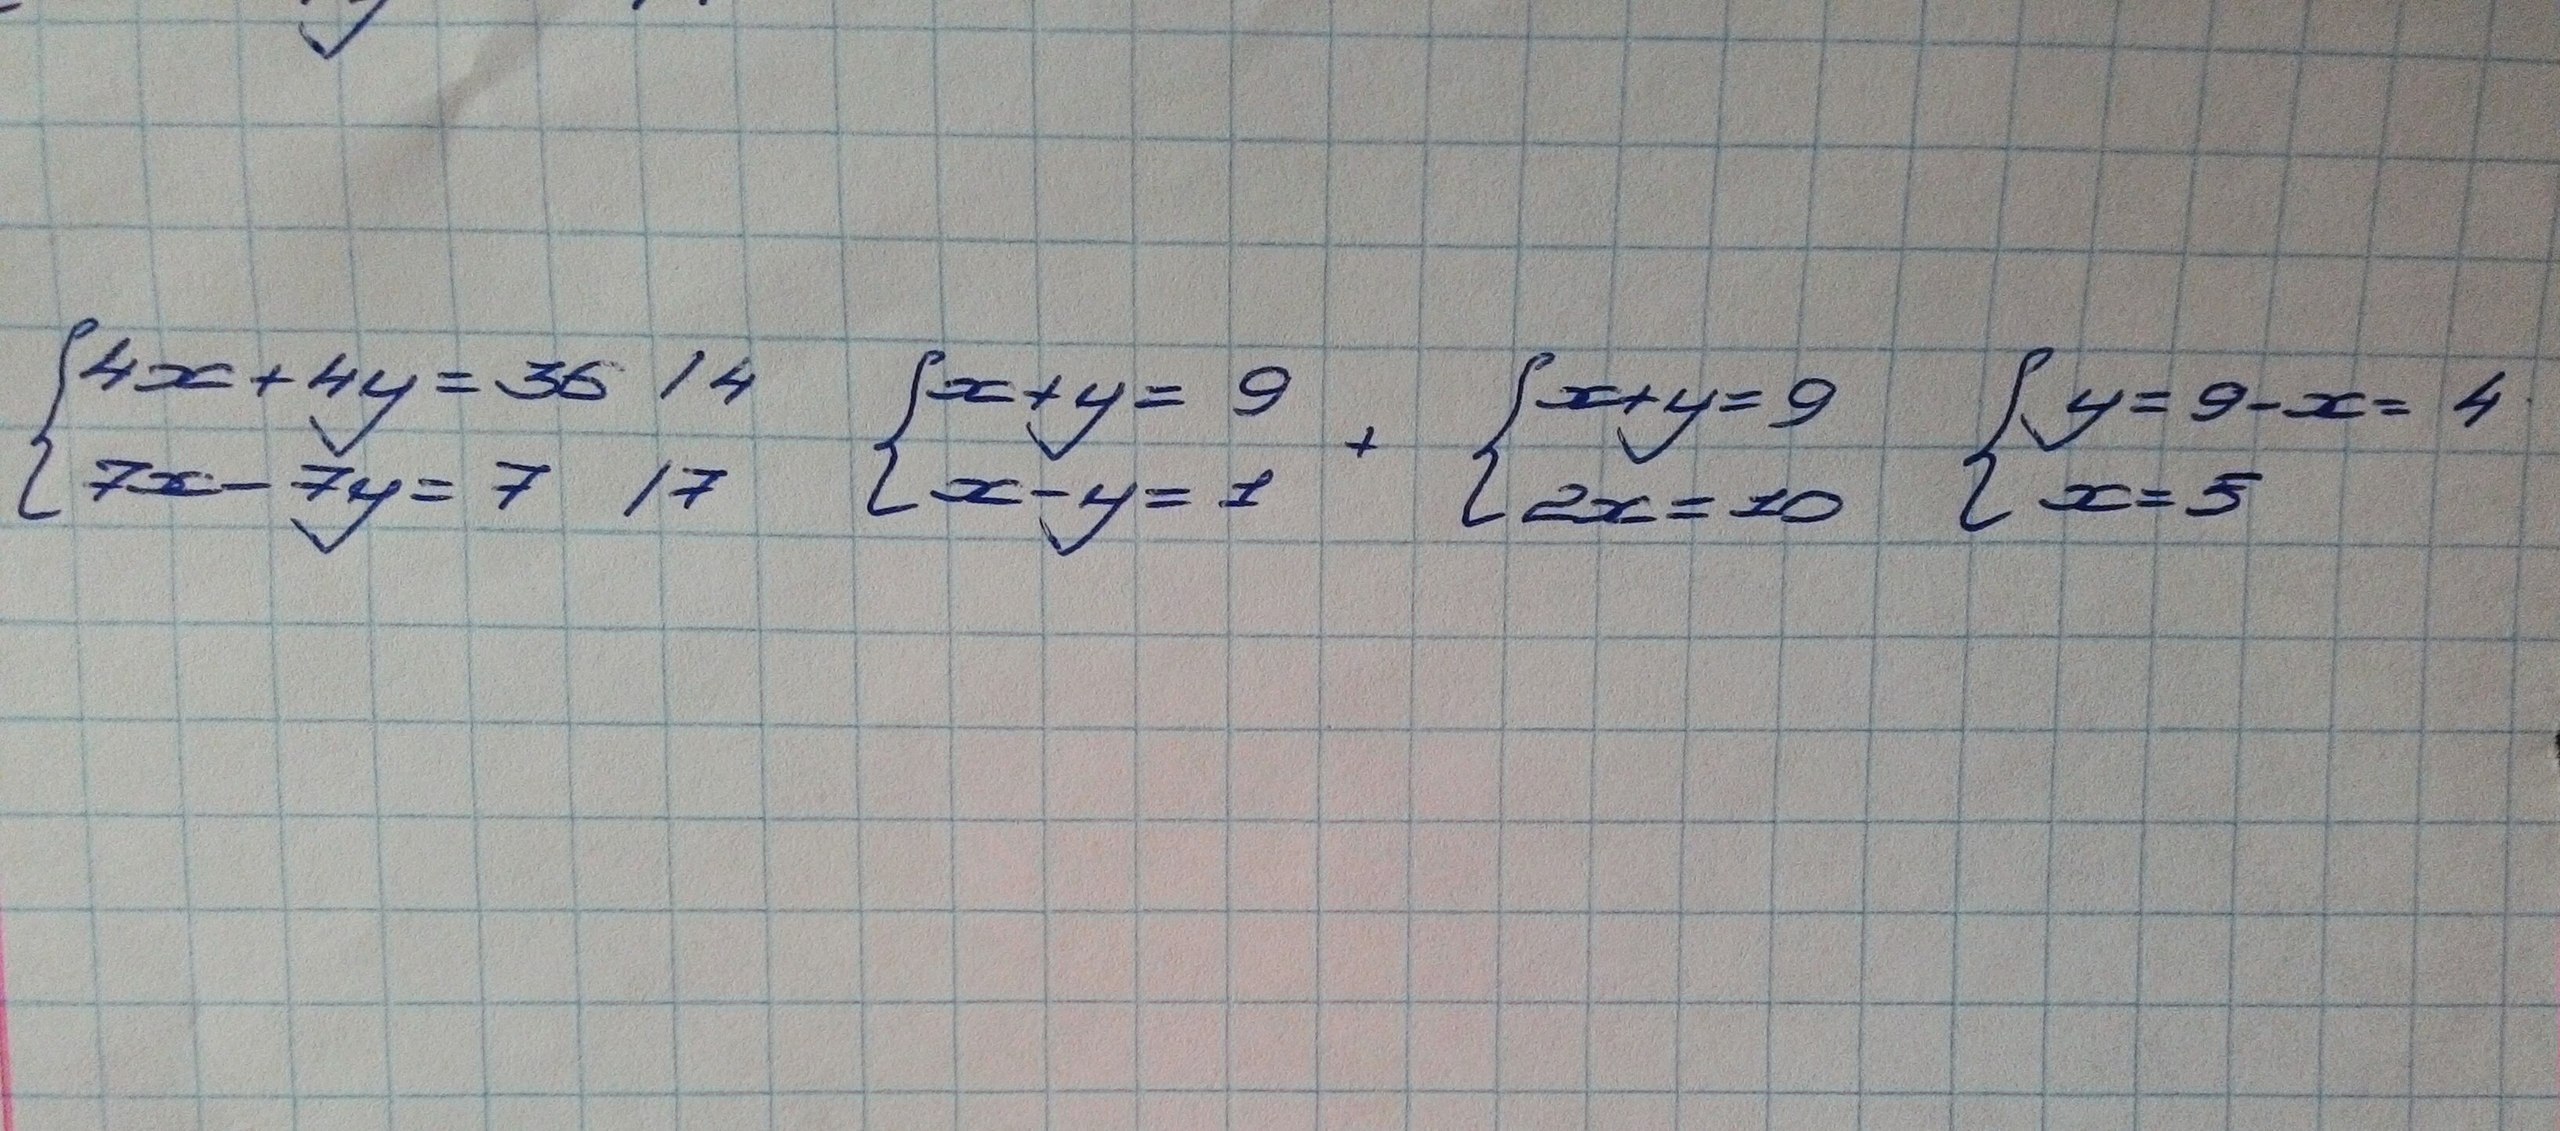 4x + 4y = 36 / 4
7x - 7y = 7 / 7
x + y = 9
x - y = 1
+
x + y = 9
2x = 10
y = 9 - x = 4
x = 5